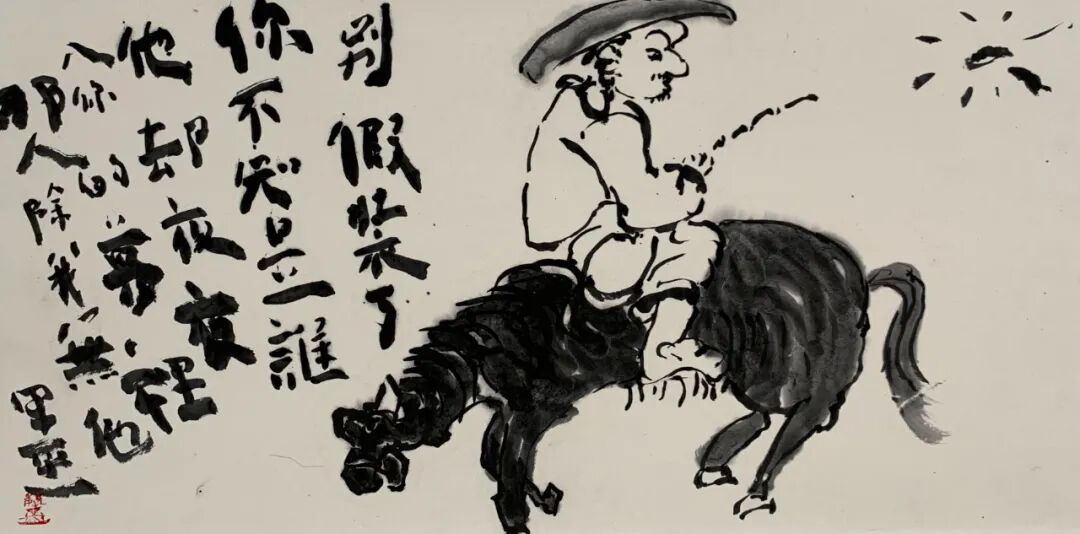 别假装了
你不知是誰
他却夜夜
入你的夢裡
那人除我無他